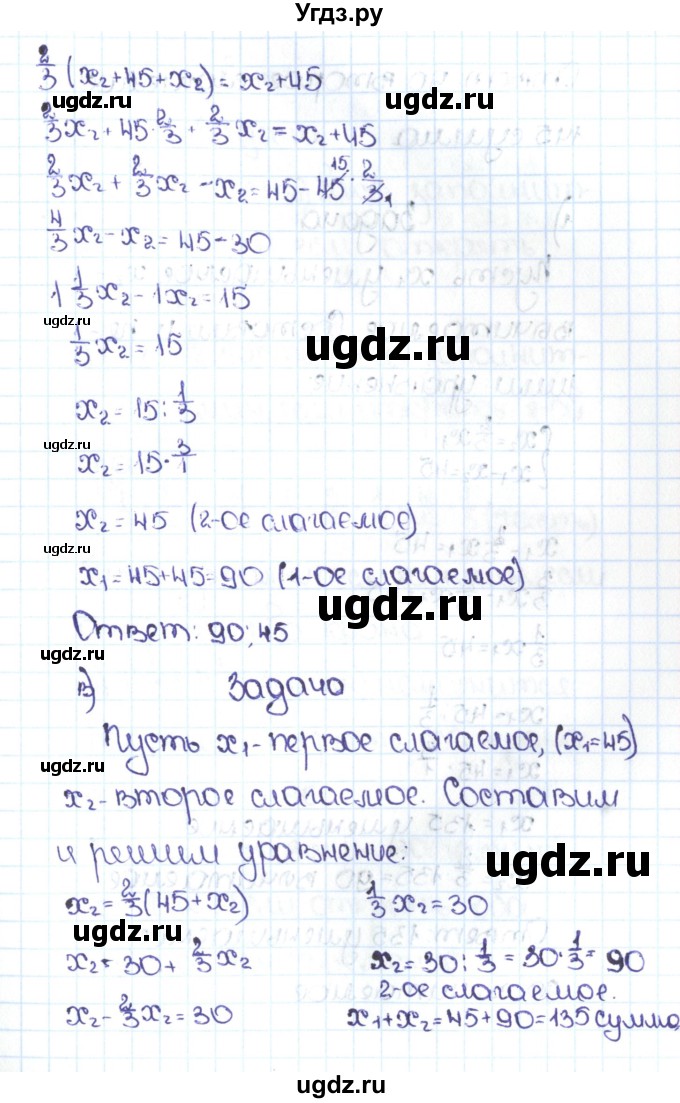 Угдз.ру
2/3 (x₂+45+x₂) = x₂+45
ugdz.ru
2/3 x₂ + 45·2/3 + 2/3 x₂ = x₂+45
2/3 x₂ + 2/3 x₂ - x₂ = 45 - 45 15 · 2/3 1
4/3 x₂ - x₂ = 45-30
1 1/3 x₂ - 1x₂ = 15
ugdz.ru
1/3 x₂ = 15
ugdz.ru
x₂ = 15 : 1/3
ugdz.ru
x₂ = 15 · 3/1
x₂ = 45 (2-ое слагаемое)
ugdz.ru
x₁ = 45+45 = 90 (1-ое слагаемое)
ugdz.ru
Ответ: 90; 45
ugdz.ru
в) Задача
Пусть x₁ - первое слагаемое, (x₁=45)
ugdz.ru
x₂ - второе слагаемое. Составим
и решим уравнение:
ugdz.ru
x₂ = 2/3 (45+x₂) 1/3 x₂ = 30
ugdz.ru
x₂ = 30 + 2/3 x₂ x₂ = 30 : 1/3 = 30 · 1/3 = 90
2-ое слагаемое.
x₂ - 2/3 x₂ = 30 x₁+x₂ = 45+90 = 135 сумма
ugdz.ru
ugdz.ru